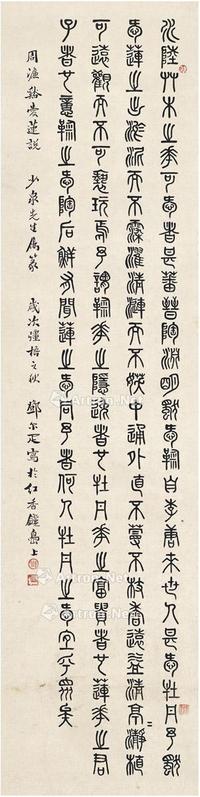 水陸艸木之華可愛者甚蕃晉陶淵明獨愛鞠自李唐來世人甚愛牡丹予獨
愛蓮之出淤泥而不染濯清漣而不妖中通外直不蔓不枝香遠益清亭=瀞植
可遠觀而不可褻玩焉予謂鞠華之隱逸者也牡丹華之富貴者也蓮華之君
子者也噫鞠之愛陶后鮮有聞蓮之愛同予者何人牡丹之愛宜乎眾矣
周濂谿愛蓮說 少泉先生屬篆 歲次彊梧之秋 鄧尔疋寫於紅香鑪島上